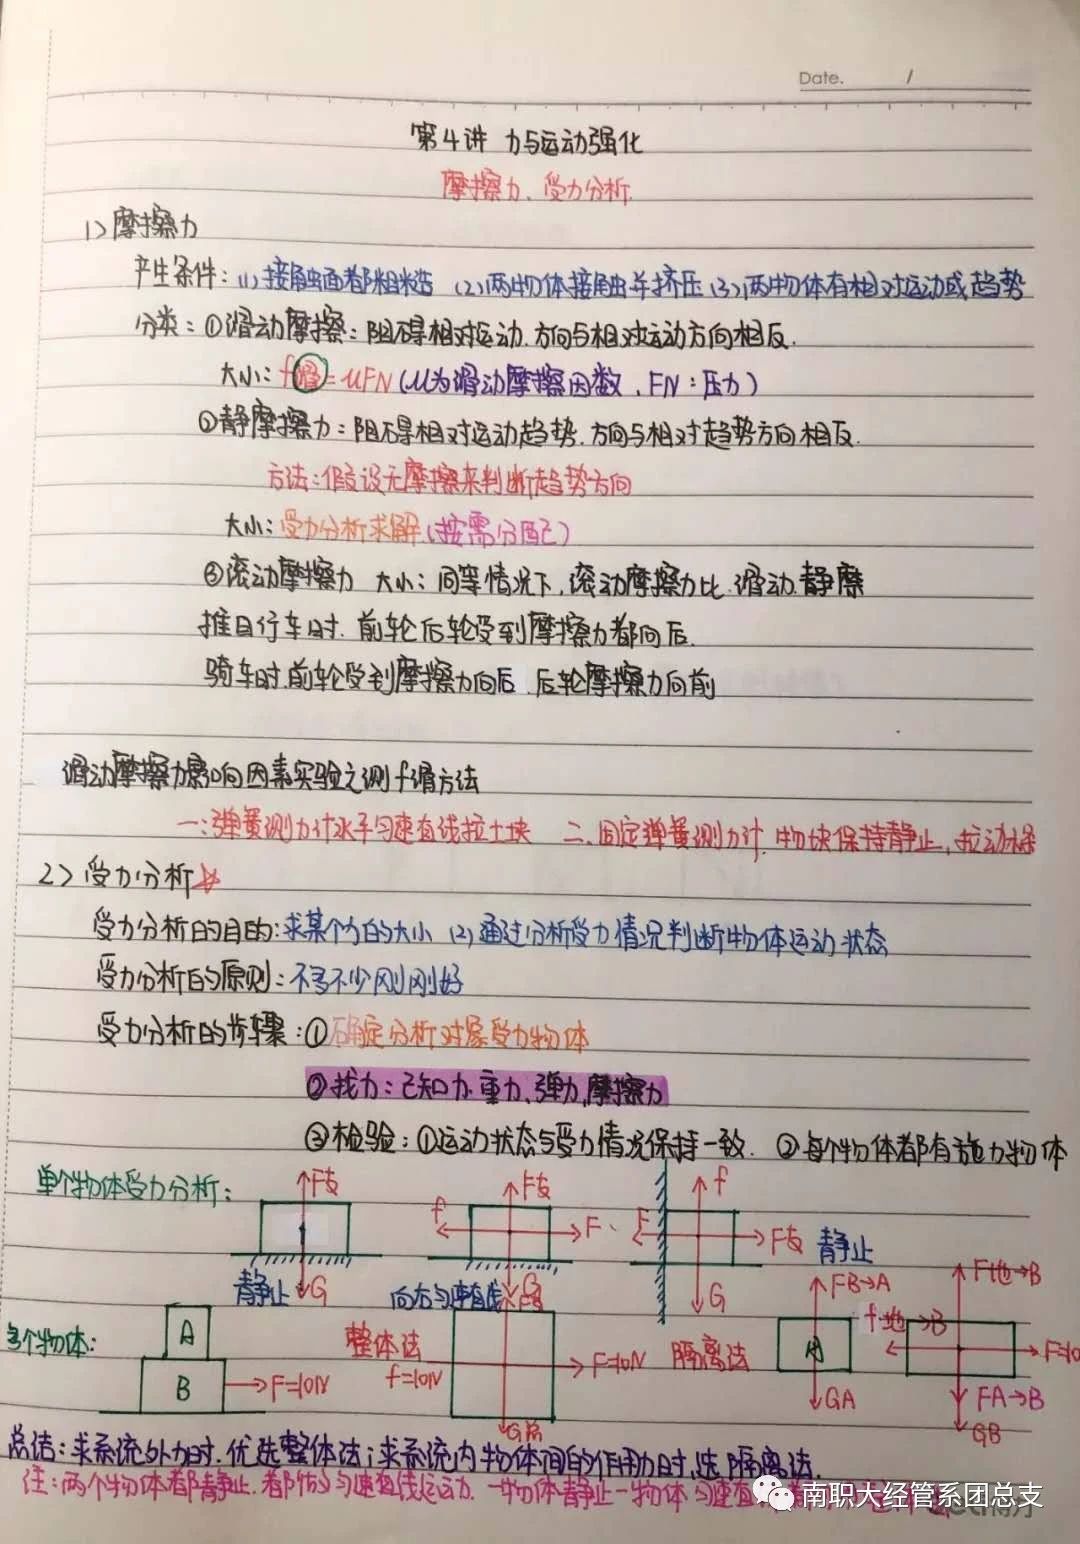 Date. /
第4讲 力与运动强化
摩擦力、受力分析
1>摩擦力
产生条件:(1)接触面都粗糙 (2)两物体接触并挤压 (3)两物体有相对运动或趋势
分类:①滑动摩擦:阻碍相对运动.方向与相对运动方向相反.
大小:f滑=μFN(μ为滑动摩擦因数,FN:压力)
②静摩擦力:阻碍相对运动趋势.方向与相对趋势方向相反.
方法:假设无摩擦来判断趋势方向
大小:受力分析求解(按需分配)
③滚动摩擦力 大小:同等情况下,滚动摩擦力比.滑动.静摩
推自行车时.前轮后轮受到摩擦力都向后.
骑车时.前轮受到摩擦力向后.后轮摩擦力向前
滑动摩擦力影响因素实验之测f滑方法
一:弹簧测力计水平匀速直线拉土块 二、固定弹簧测力计.物块保持静止,拉动
2>受力分析
受力分析的目的:求某个力的大小 (2)通过分析受力情况判断物体运动状态
受力分析的原则:不多不少刚刚好
受力分析的步骤:①确定分析对象受力物体
②找力:已知力.重力、弹力,摩擦力
③检验:①运动状态与受力情况保持一致.②每个物体都有施力物体
单个物体受力分析:
F支 F支 f
f F、 F F支 静止
静止 G 向右匀速直线 G G
FB→A F地→B
多个物体: A 整体法 F支 隔离法 A f地→B
B F=10N f=10N F=10N F=10
GA FA→B
G总 GB
总结:求系统外力时.优选整体法;求系统内物体间的作用力时,选隔离法.
注:两个物体都静止.都做匀速直线运动.一物体静止一物体匀速直
南职大经管系团总支